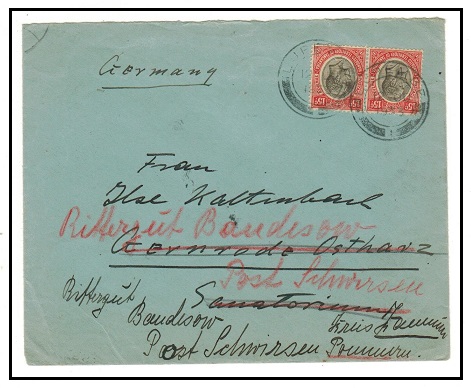 Germany
15c 15c
Frau
Ilse Kaltenbach
Rittergut Bandesow
Gernrode Ostharz
Post Schwirsen
Sanatorium
Rittergut
Bandesow
Kreis Kammin
Post Schwirsen Pommern.